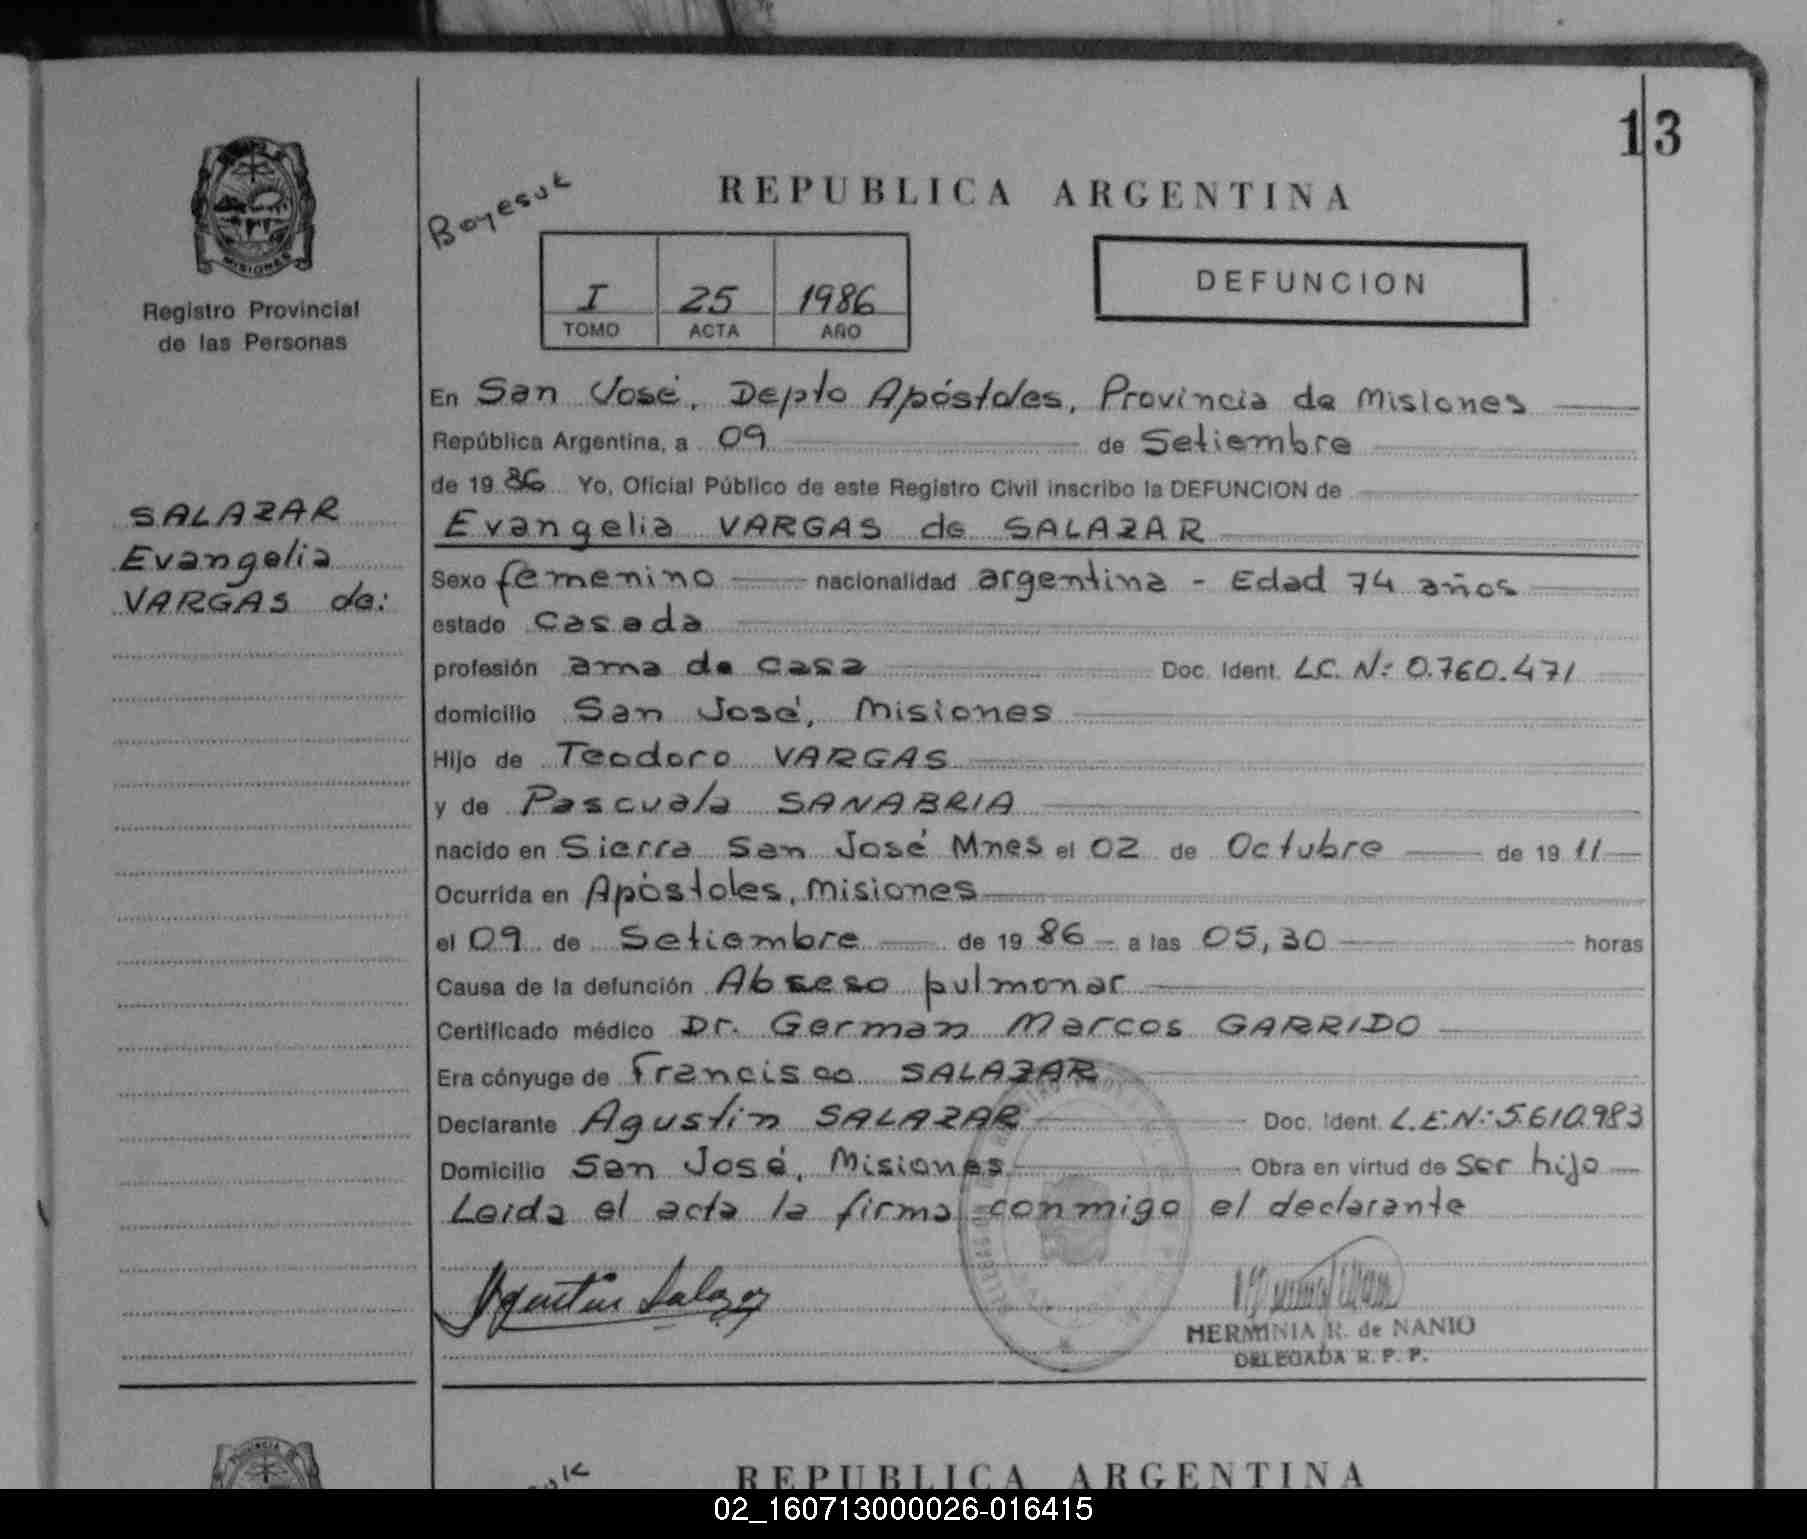 13
MISIONES
Registro Provincial
de las Personas
SALAZAR
Evangelia
VARGAS de:
REPUBLICA ARGENTINA
I 25 1986
TOMO ACTA AÑO
DEFUNCION
En San José, Depto Apóstoles, Provincia de Misiones
República Argentina, a 09 de Setiembre
de 1986 Yo, Oficial Público de este Registro Civil inscribo la DEFUNCION de
Evangelia VARGAS de SALAZAR
Sexo femenino nacionalidad argentina - Edad 74 años
estado casada
profesión ama de casa Doc. Ident. LC. N: 0.760.471
domicilio San José, Misiones
Hijo de Teodoro VARGAS
y de Pascuala SANABRIA
nacido en Sierra San José Mnes el 02 de Octubre de 1911
Ocurrida en Apóstoles, Misiones
el 09 de Setiembre de 1986 a las 05,30 horas
Causa de la defunción Abseso pulmonar
Certificado médico Dr. German Marcos GARRIDO
Era cónyuge de Francisco SALAZAR
Declarante Agustin SALAZAR Doc. Ident. L.E.N: 5.610.983
Domicilio San José, Misiones Obra en virtud de ser hijo
Leida el acta la firma conmigo el declarante
Agustin Salazar
HERMINIA R. de NANIO
DELEGADA R. P. P.
REPUBLICA ARGENTINA
02_160713000026-016415